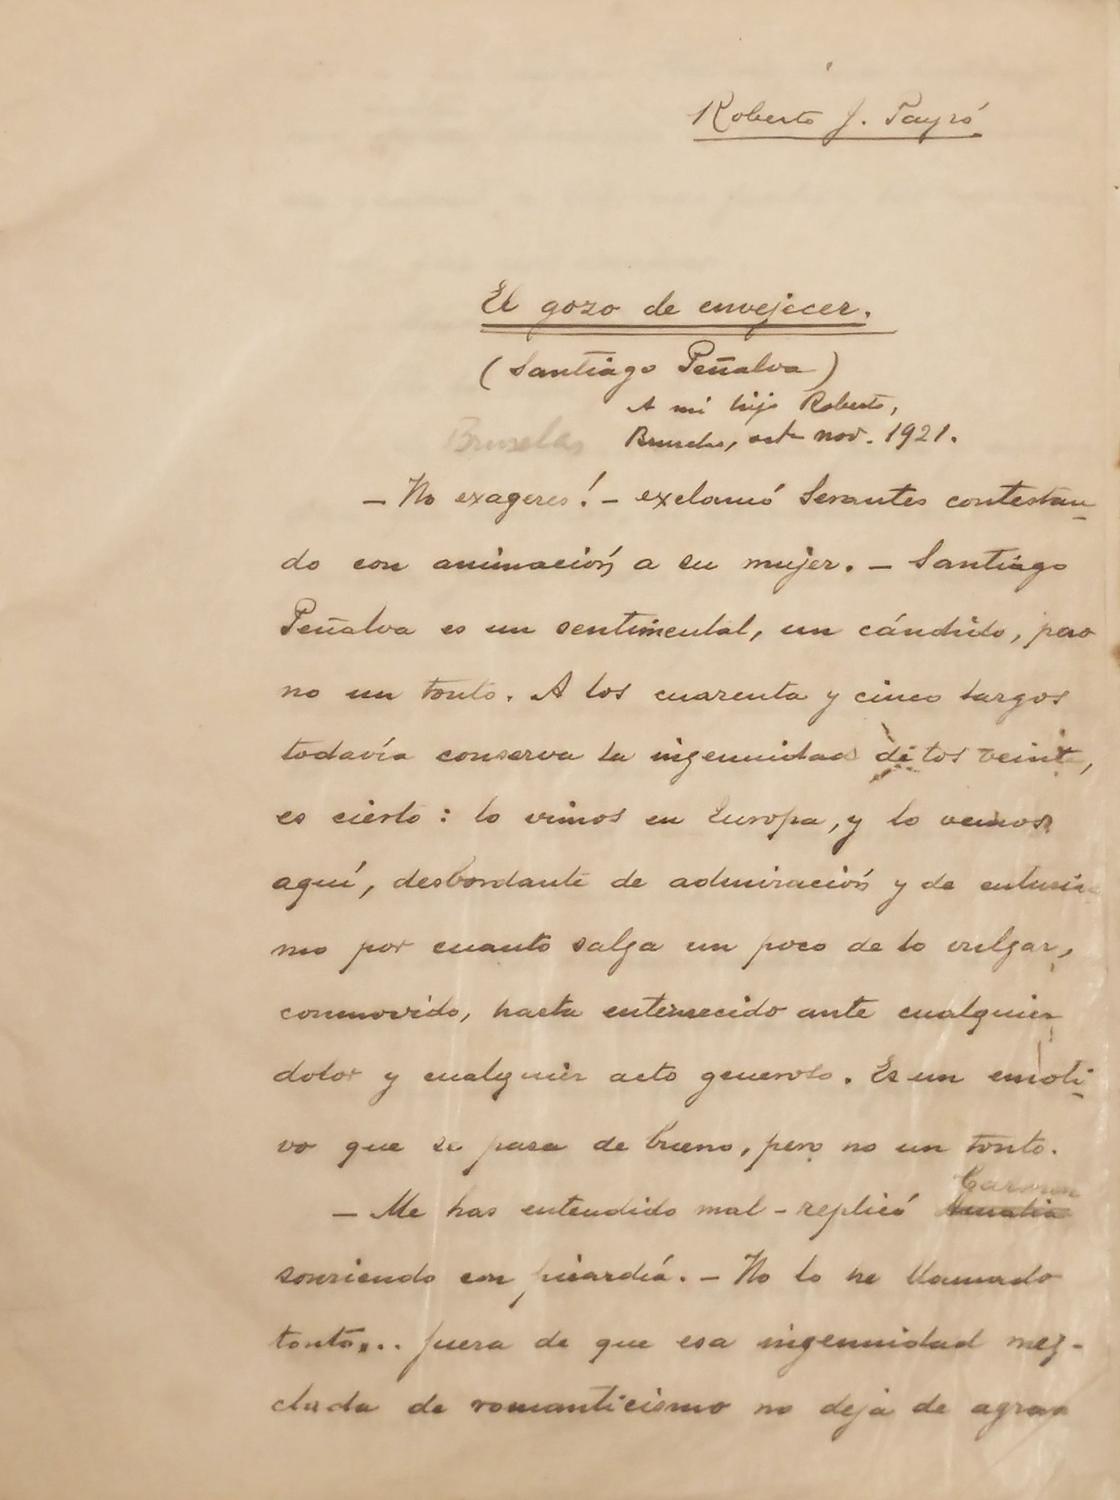 Roberto J. Payró
El gozo de envejecer.
(Santiago Peñalva)
A mi hijo Roberto,
Bruselas Bruselas, oct-nov. 1921.
— No exageres! — exclamó Serantes contestan-
do con animación a su mujer. — Santiago
Peñalva es un sentimental, un cándido, pero
no un tonto. A los cuarenta y cinco largos
todavía conserva la ingenuidad de los veinte,
es cierto: lo vimos en Europa, y lo vemos
aquí, desbordante de admiración y de entusias
mo por cuanto salga un poco de lo vulgar,
conmovido, hasta enternecido ante cualquier
dolor y cualquier acto generoso. Es un emoti-
vo que se pasa de bueno, pero no un tonto.
— Me has entendido mal — replicó Carmen Amalia
sonriendo con picardía. — No lo he llamado
tonto... fuera de que esa ingenuidad mez-
clada de romanticismo no deja de agra